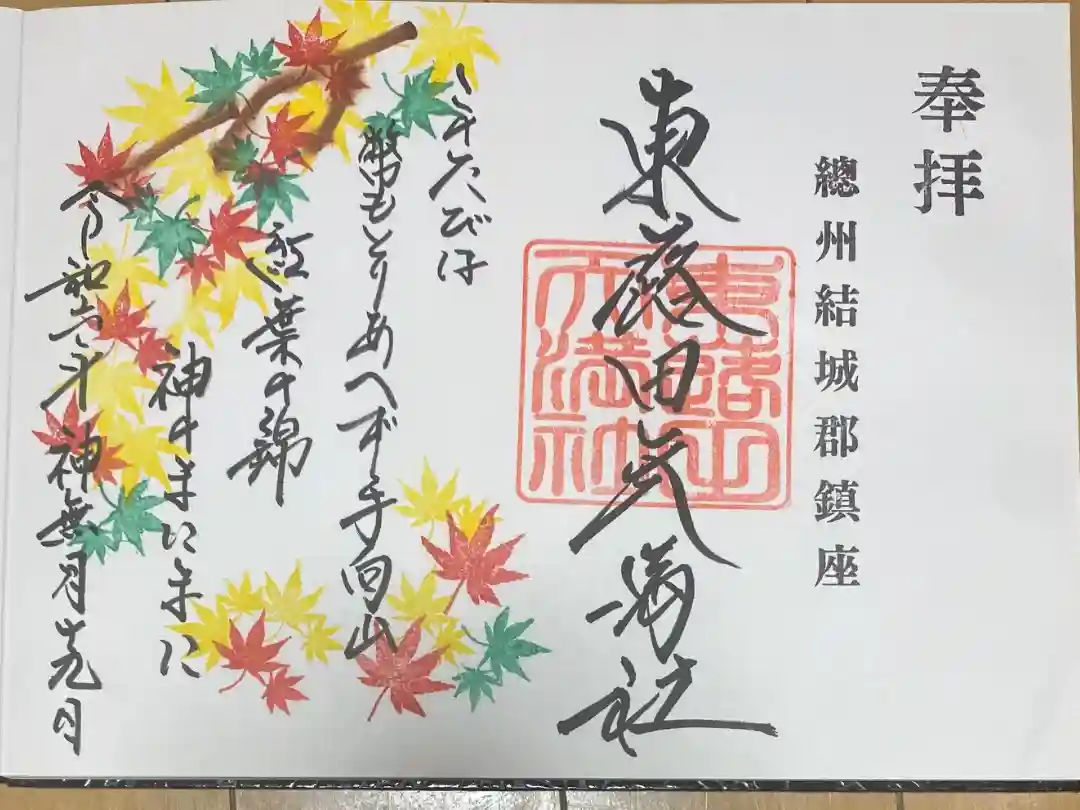 奉拝
總州結城郡鎮座
東蕗田天満社
東蕗田天満社
このたびは
幣もとりあへず手向山
紅葉の錦
神のまにまに
令和六年 神無月 日